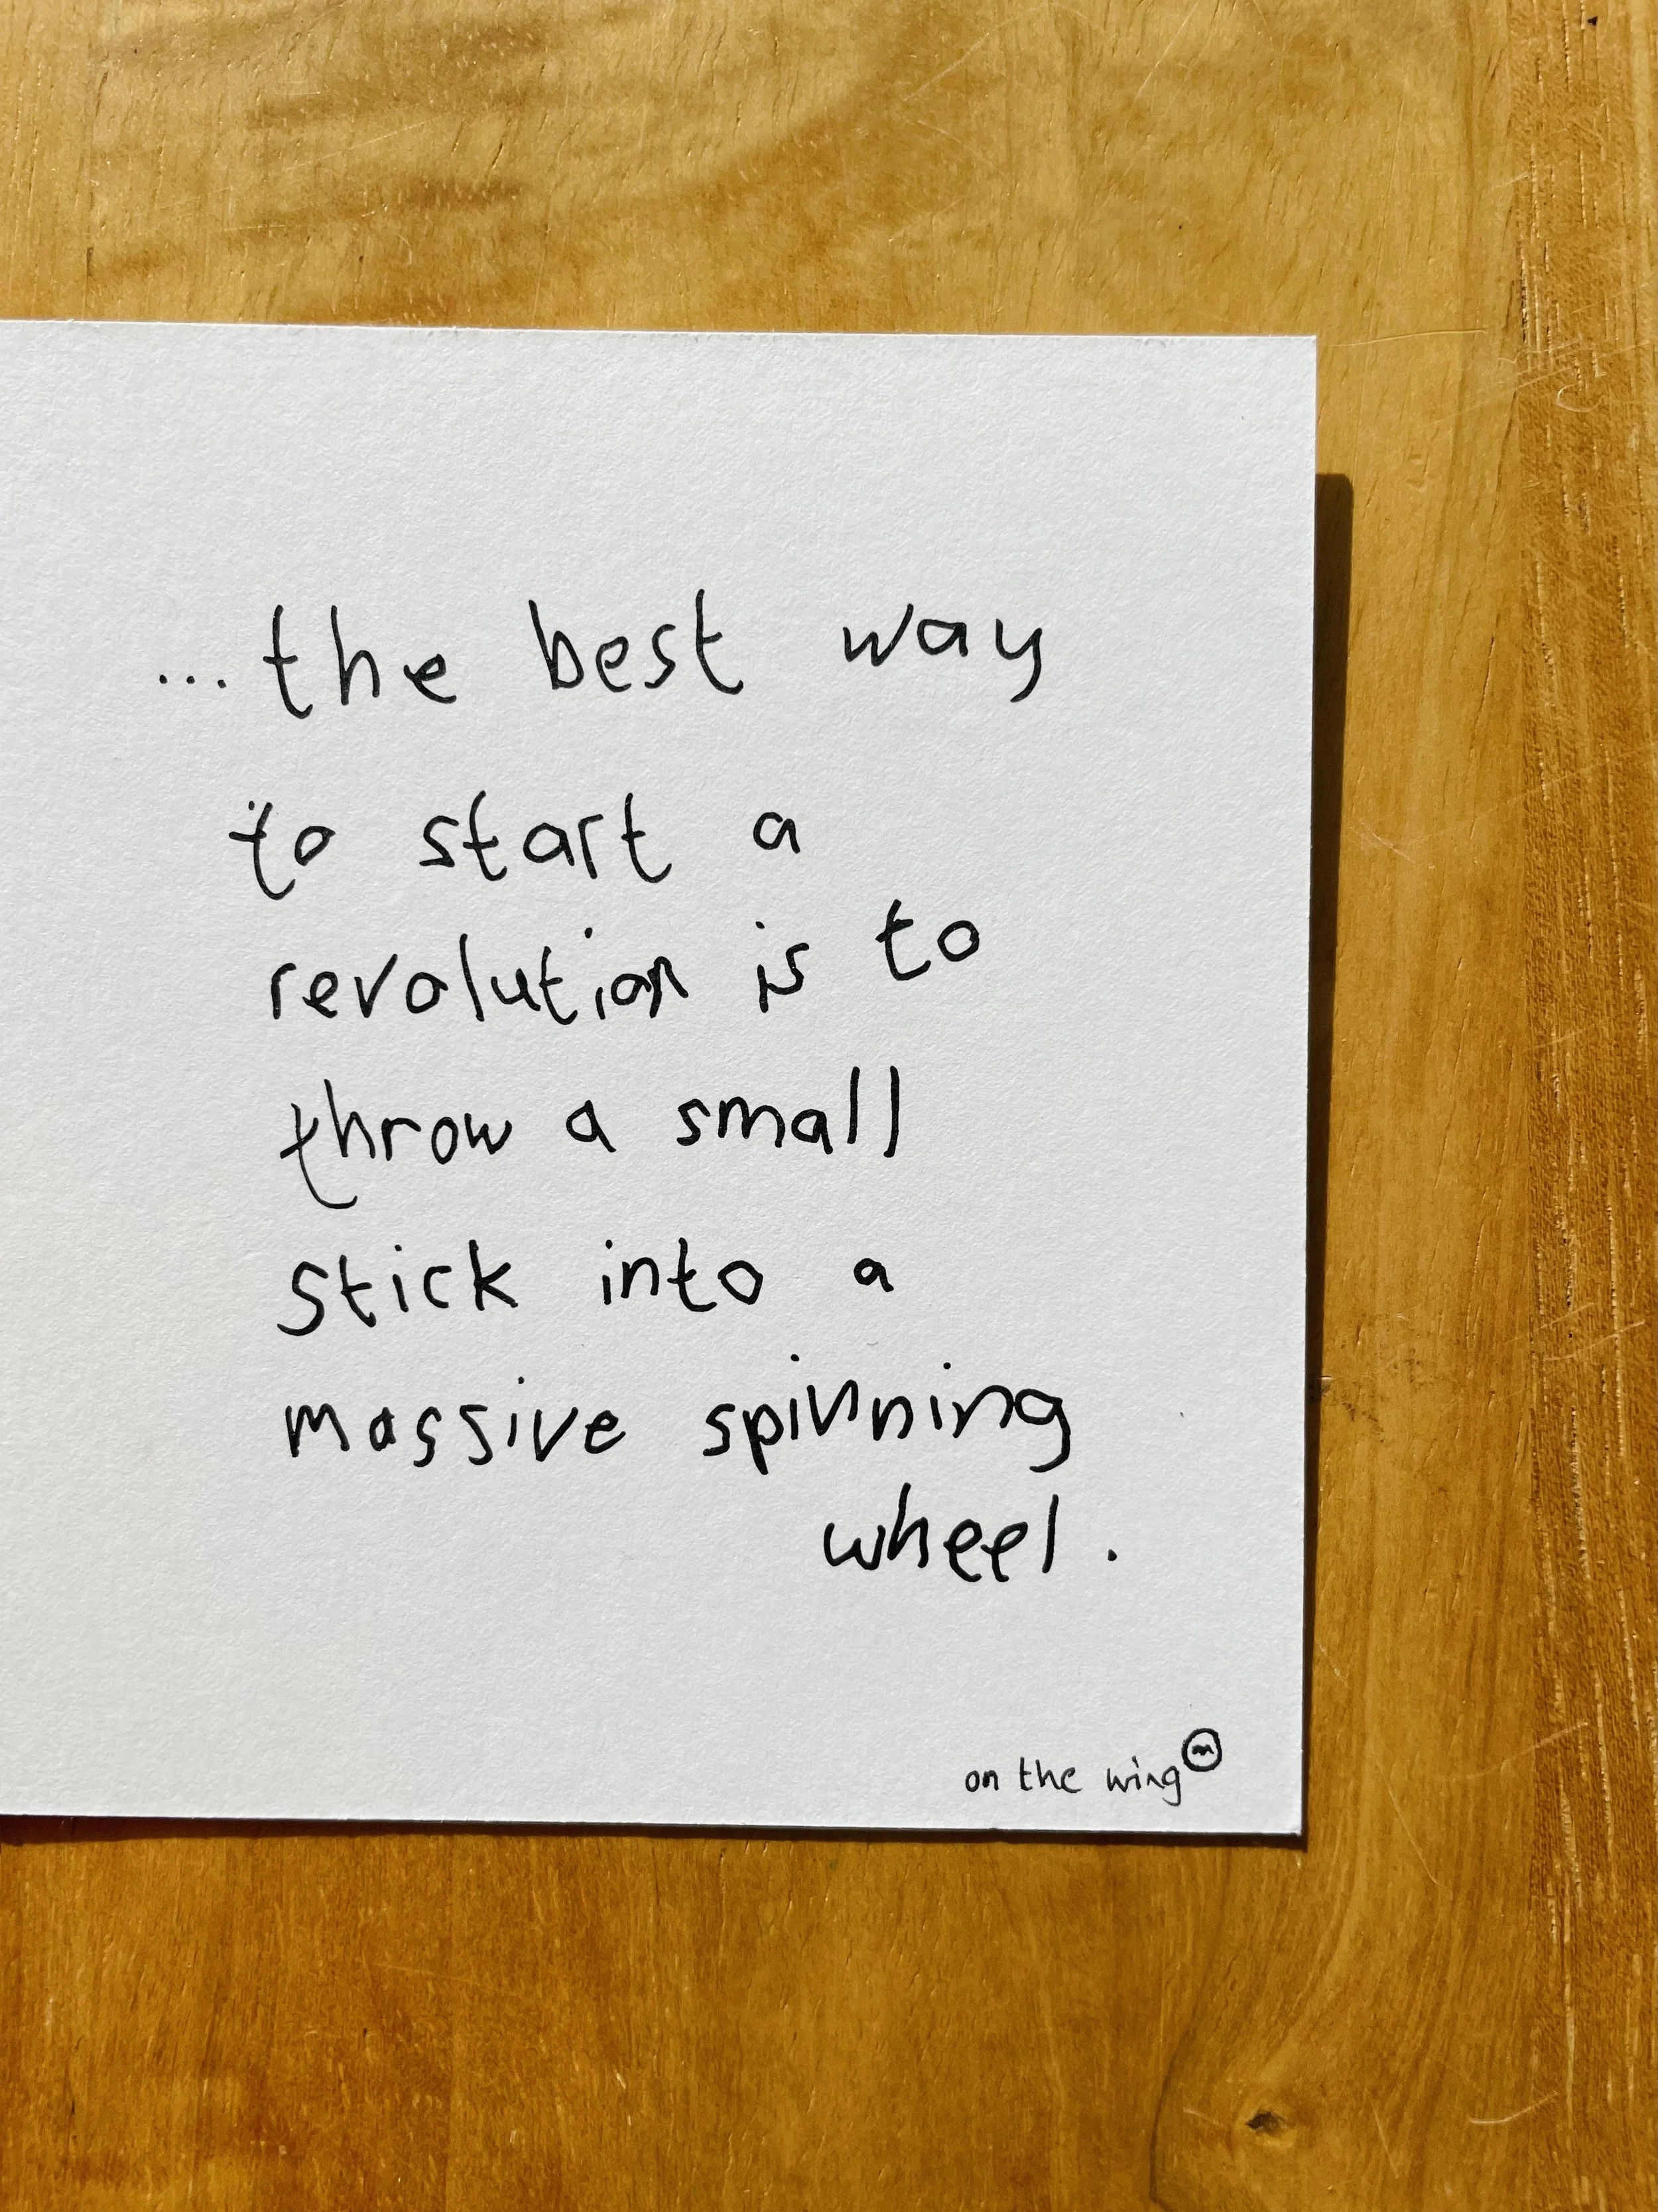 ...the best way
to start a
revolution is to
throw a small
stick into a
massive spinning
wheel.
on the wing m